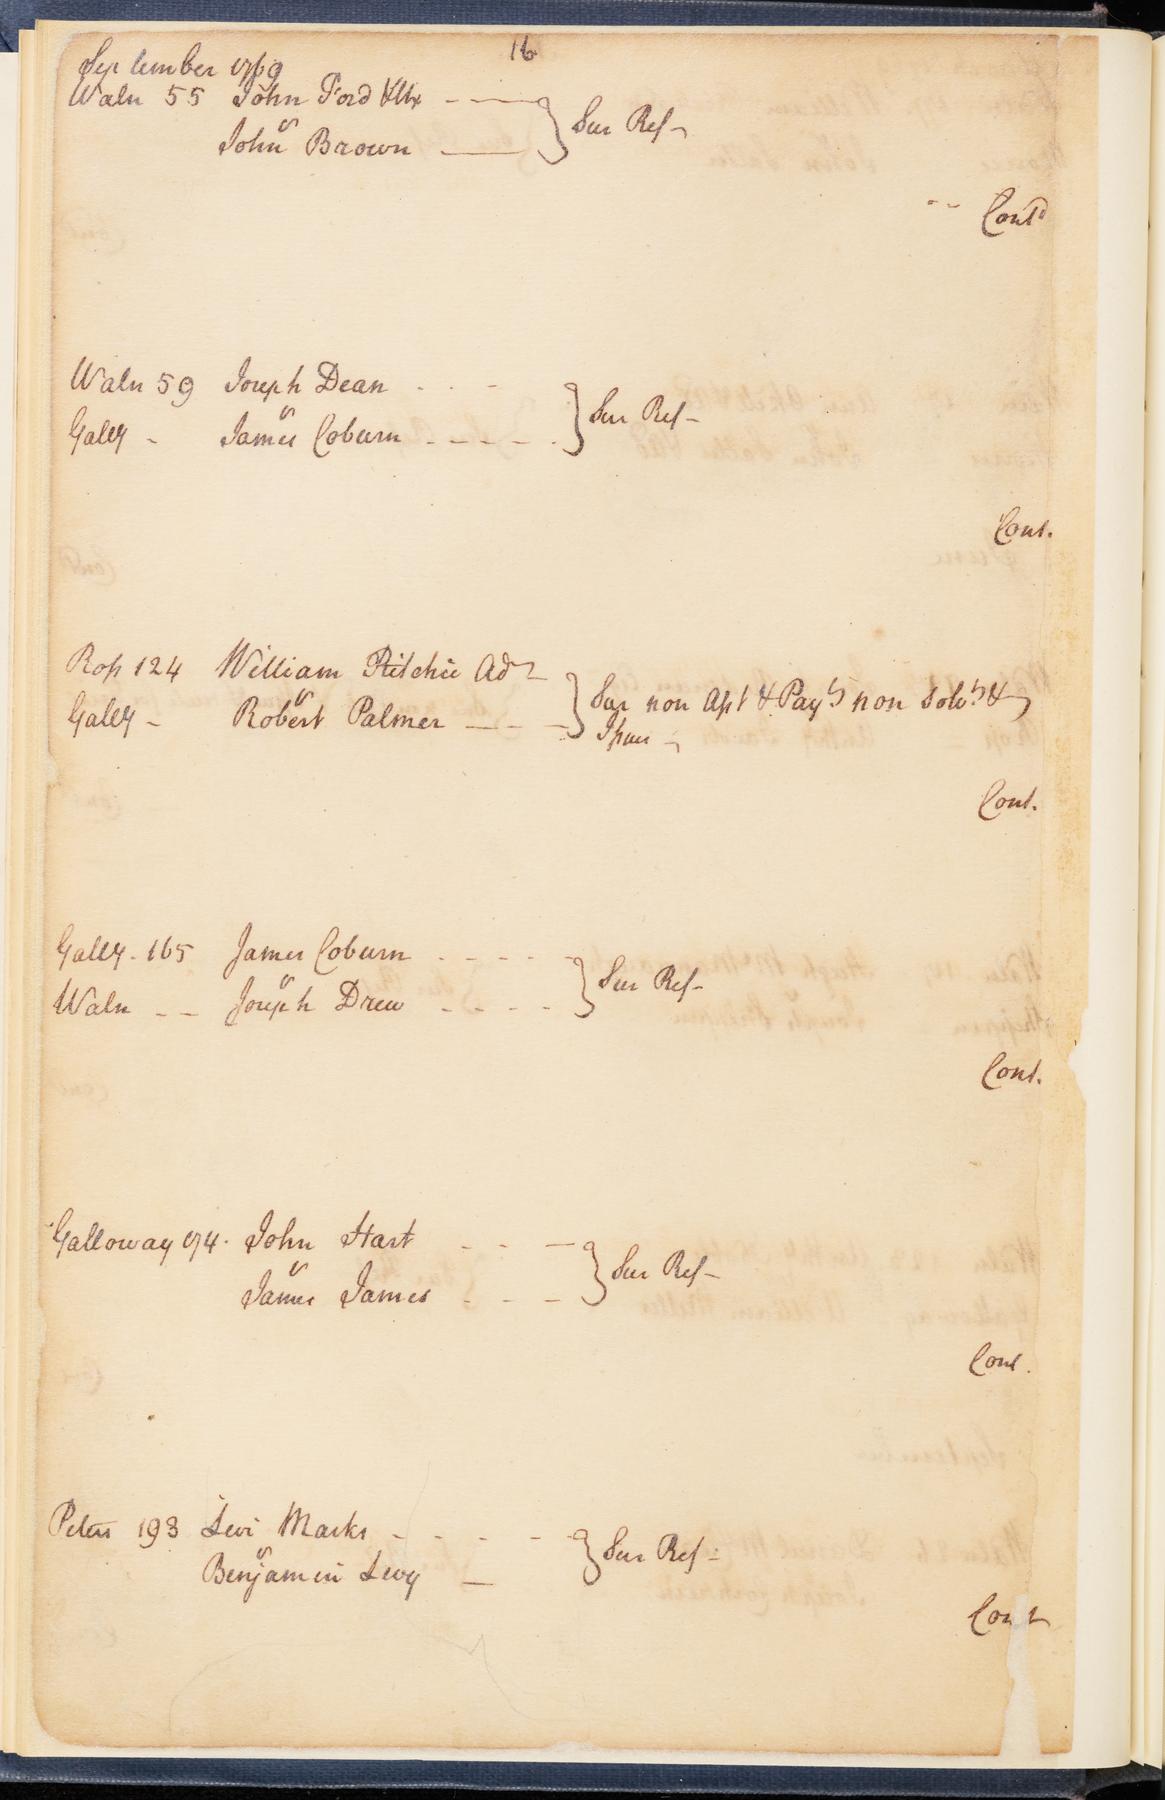 16
September 1769
Waln 55 John Ford &Ux
vs
John Brown
} Sur Ref
Contd
Waln 59 Joseph Dean
vs
Gally James Coburn
} Sur Ref
Cont.
Ross 124 William Ritchie Adr
vs
Gally Robert Palmer
} Sur non Apt & Payt non solvt &
Issue
Cont.
Gally. 165 James Coburn
vs
Waln Joseph Drew
} Sur Ref
Cont.
Galloway 174. John Hart
vs
James James
} Sur Ref
Cont.
Peters 193 Levi Marks
vs
Benjamin Levy
} Sur Ref
Cont